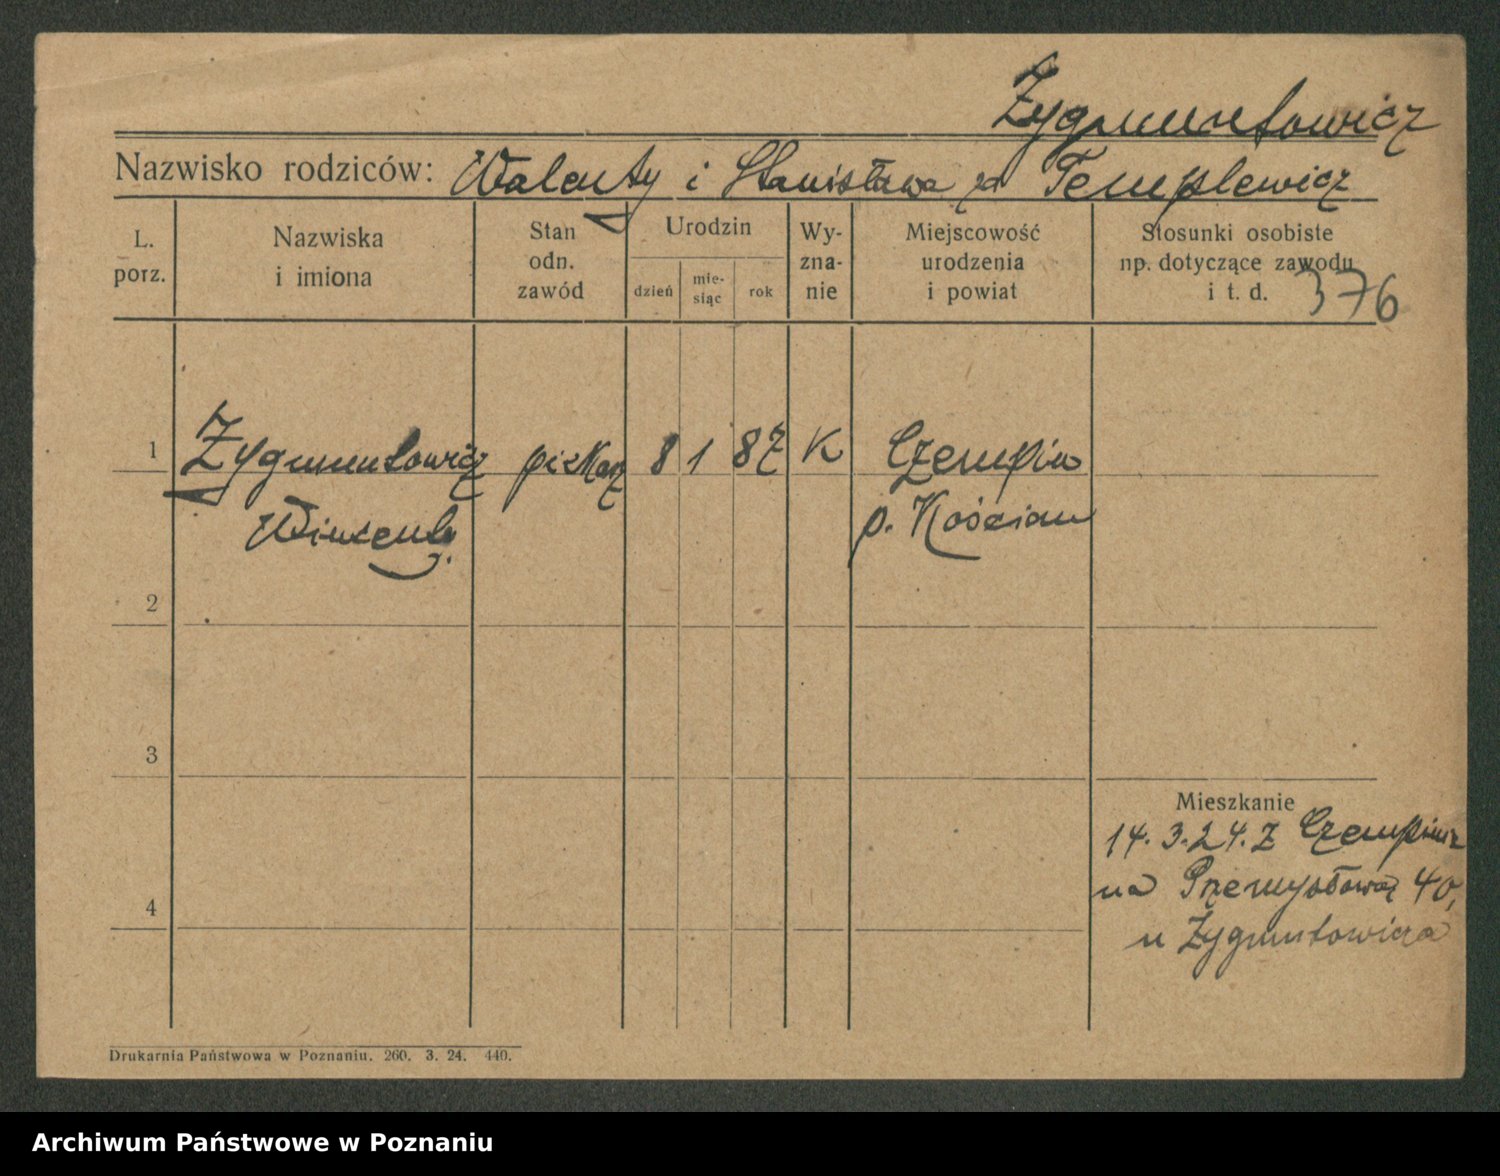 Zygmuntowicz
Nazwisko rodziców: Walenty i Stanisława zd Templewicz
L. porz.
Nazwiska i imiona
Stan odn. zawód
Urodzin
dzień
mie-siąc
rok
Wy-zna-nie
Miejscowość urodzenia i powiat
Stosunki osobiste np. dotyczące zawodu i t. d.
376
1 Zygmuntowicz piekarz 8 1 87 K Czempin
Wincenty. p. Kościan
2
3
Mieszkanie
14. 3. 24. z Czempinia
na Przemysłową 40,
4
u Zygmuntowicza
Drukarnia Państwowa w Poznaniu. 260. 3. 24. 440.
Archiwum Państwowe w Poznaniu